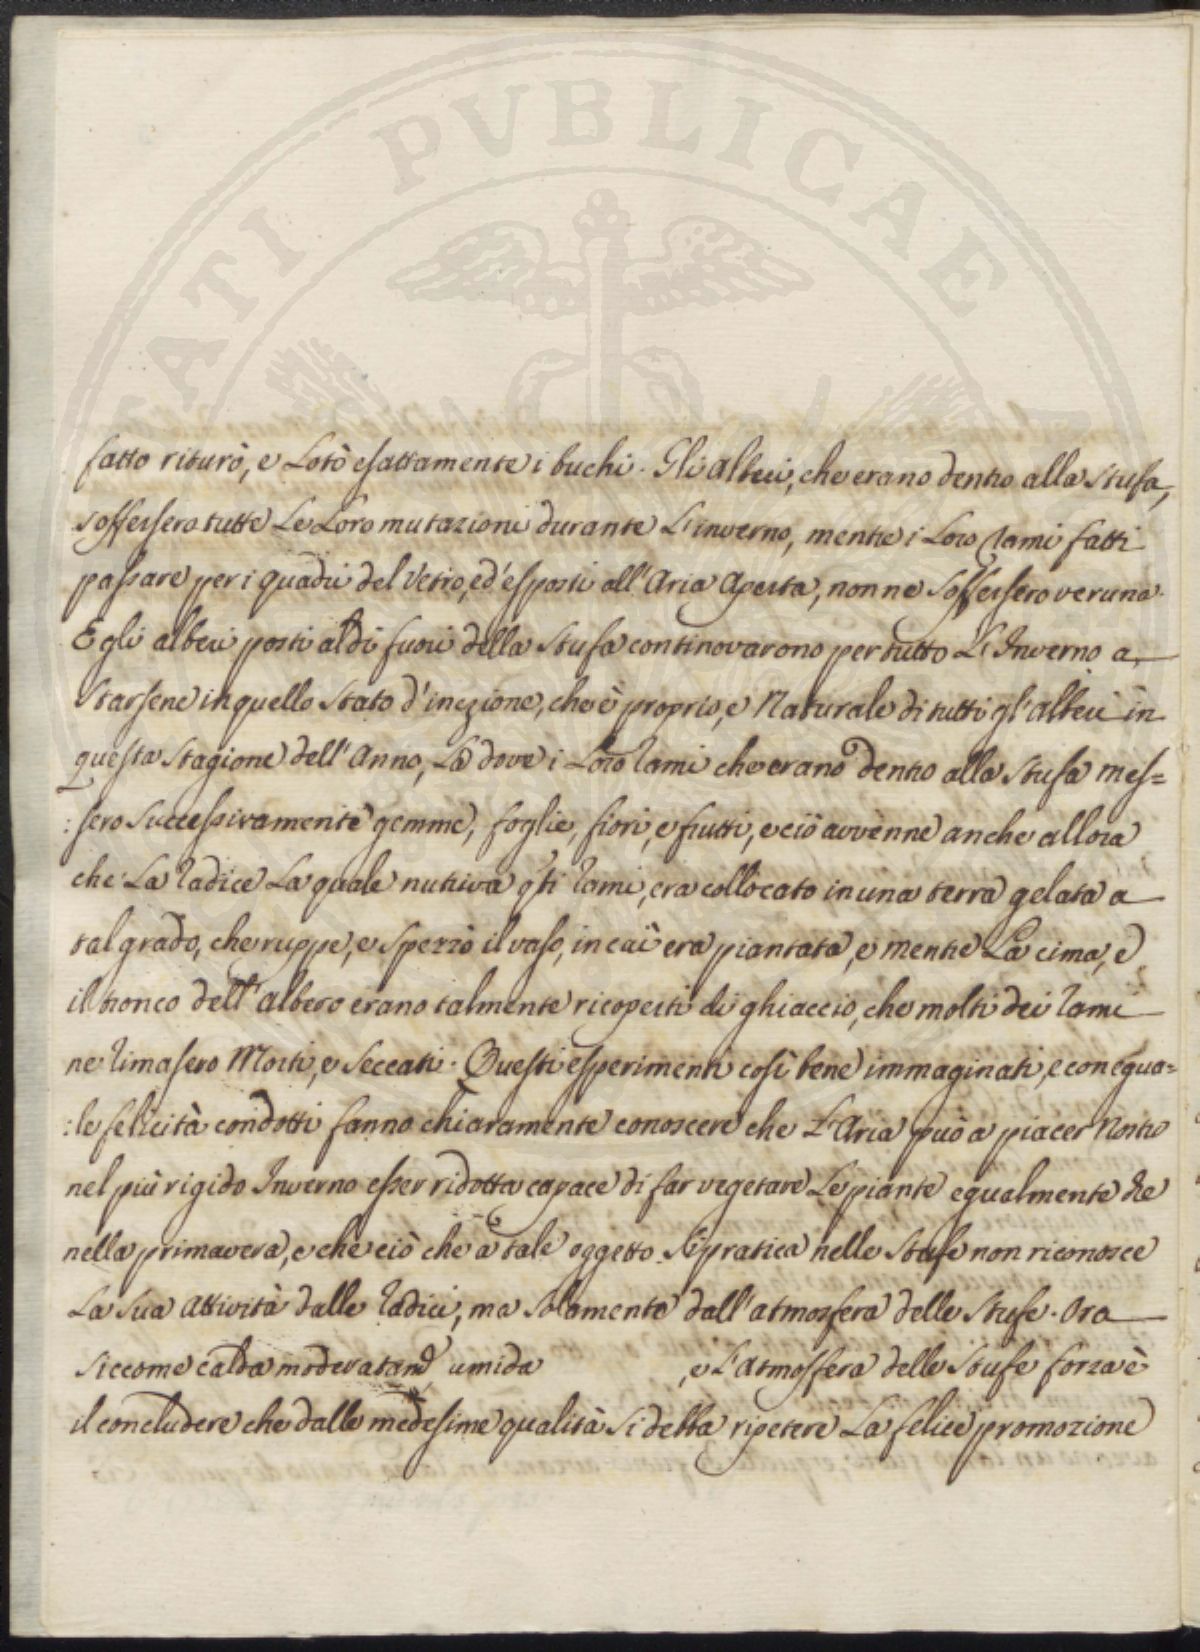 PUBLICAE
fatto riturò, e Lotò esattamente i buchi. Gli alberi, che erano dentro alla Stufa,
soffersero tutte Le Loro mutazioni durante L'inverno, mentre i Loro Rami fatti
passare per i quadri del Vetro, ed' esposti all'Aria Aperta, non ne Soffersero veruna.
E gli alberi posti al di fuori della Stufa continovarono per tutto L'Inverno a
Starsene in quello Stato d'inezione, che è proprio, e Naturale di tutti gl'alberi in
questa Stagione dell'Anno, Là dove i Loro rami che erano dentro alla Stufa mes=
:sero Successivamente gemme, foglie, fiori, e frutti, e ciò avvenne anche allora
che La radice La quale nutriva qsti rami, era collocato in una terra gelata a
tal grado, che ruppe, e Spezzò il vaso, in cui era piantata, e mentre La cima, e
il tronco dell'albero erano talmente ricoperti di ghiaccio, che molti dei rami
ne rimasero Morti, e Seccati. Questi esperimenti così bene immaginati, e con egua=
:le felicità condotti fanno chiaramente conoscere che L'Aria può a piacer Nostro
nel più rigido Inverno esser ridotta capace di far vegetare Le piante egualmente che
nella primavera, e che ciò che a tale oggetto Si pratica nelle Stufe non riconosce
La Sua Attività dalle radici, ma Solamente dall'atmosfera delle Stufe. Ora
Siccome calda moderatamᵉ umida , e L'Atmosfera delle Stufe forza è
il concludere che dalle medesime qualità Si debba ripetere La felice promozione